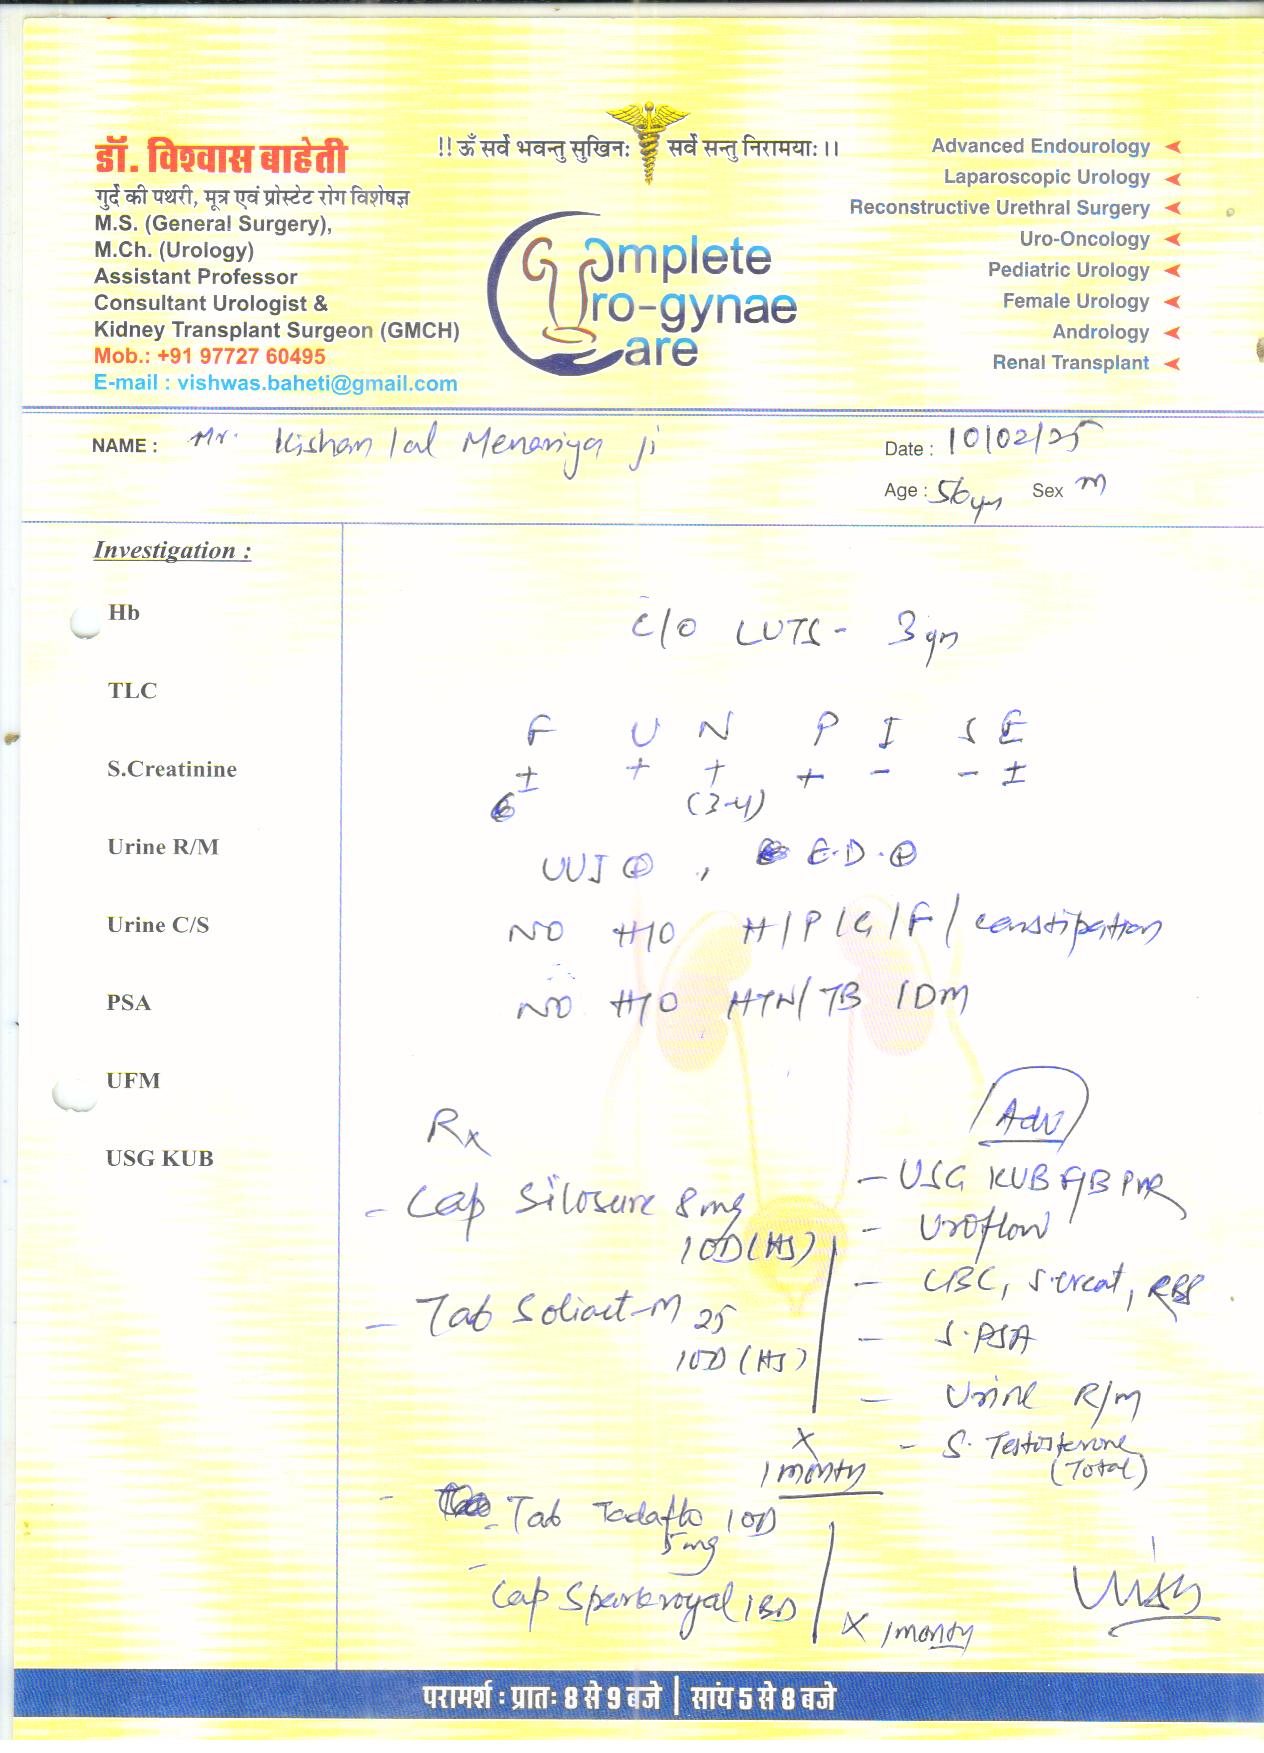 !! ॐ सर्वे भवन्तु सुखिनः सर्वे सन्तु निरामयाः ।।
डॉ. विश्वास बाहेती
गुर्दे की पथरी, मूत्र एवं प्रोस्टेट रोग विशेषज्ञ
M.S. (General Surgery),
M.Ch. (Urology)
Assistant Professor
Consultant Urologist &
Kidney Transplant Surgeon (GMCH)
Mob.: +91 97727 60495
E-mail : vishwas.baheti@gmail.com
Complete
Uro-gynae
Care
Advanced Endourology
Laparoscopic Urology
Reconstructive Urethral Surgery
Uro-Oncology
Pediatric Urology
Female Urology
Andrology
Renal Transplant
NAME : Mr. Kishan lal Menariya ji
Date : 10/02/25
Age : 56 yrs Sex M
Investigation :
Hb
TLC
S.Creatinine
Urine R/M
Urine C/S
PSA
UFM
USG KUB
C/O LUTS - 3 yrs
F U N P I S E
± + + + - - ±
(3-4)
UUI ⊕, E.D. ⊕
NO H/O H/P/G/F/constipation
NO H/O HTN/TB/DM
Rx
- Cap Silosure 8mg
1OD (HS)
- Tab Soliact-M 25
1OD (HS)
X
1 month
- Tab Tadaflo 1OD
5mg
- Cap Sparkroyal 1BD
X 1 month
Adv
- USG KUB F/B PVR
- Uroflow
- CBC, S.creat, RBS
- S.PSA
- Urine R/M
- S. Testosterone
(Total)
परामर्श : प्रातः 8 से 9 बजे | सांय 5 से 8 बजे